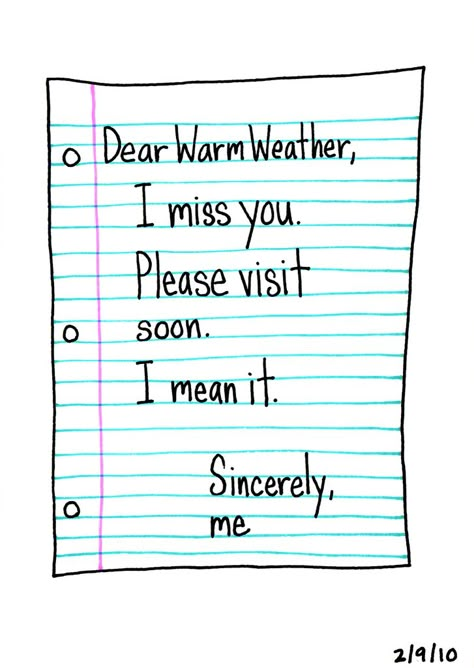 Dear Warm Weather,
I miss you.
Please visit
soon.
I mean it.
Sincerely,
me
2/9/10